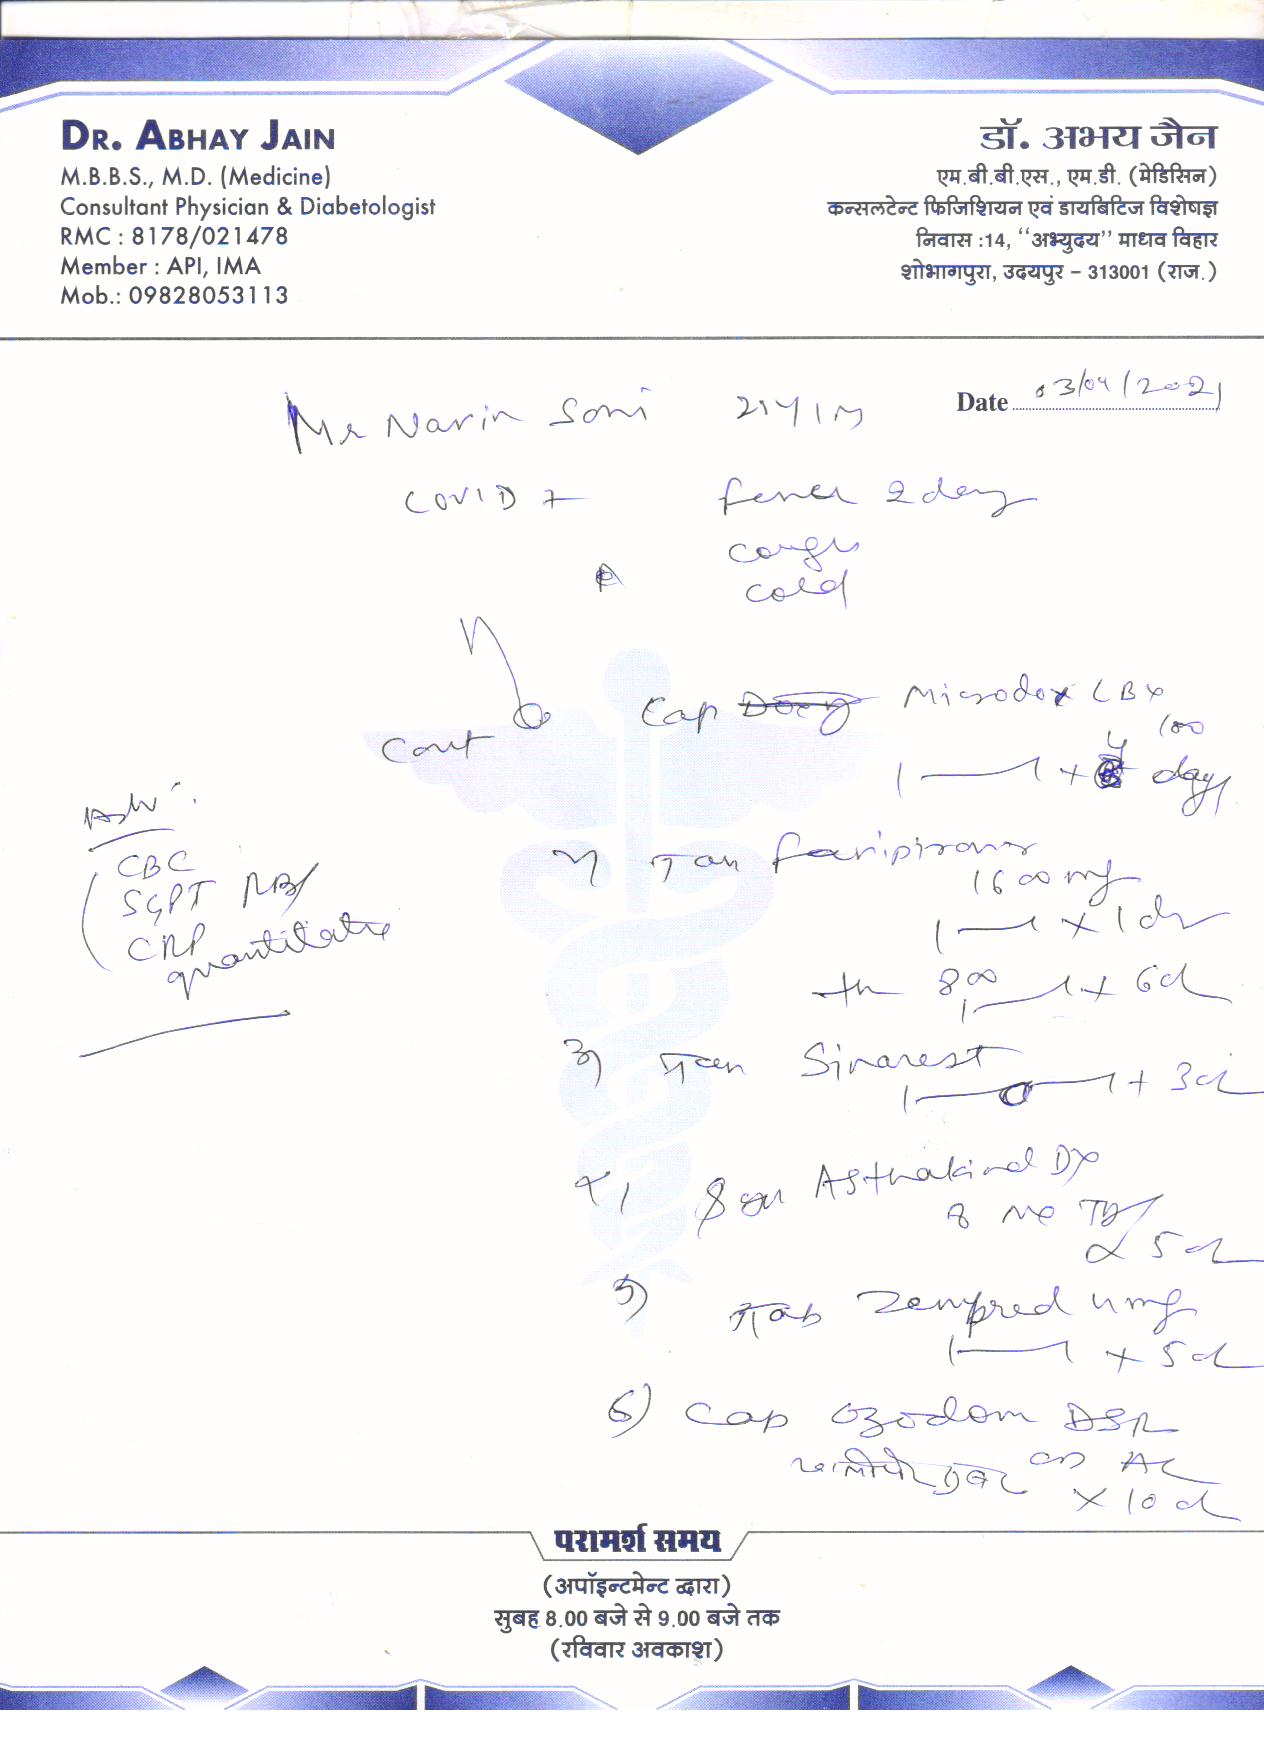 DR. ABHAY JAIN
M.B.B.S., M.D. (Medicine)
Consultant Physician & Diabetologist
RMC : 8178/021478
Member : API, IMA
Mob.: 09828053113
डॉ. अभय जैन
एम.बी.बी.एस., एम.डी. (मेडिसिन)
कन्सलटेन्ट फिजिशियन एवं डायबिटिज विशेषज्ञ
निवास :14, "अभ्युदय" माधव विहार
शोभागपुरा, उदयपुर - 313001 (राज.)
Date 03/04/2021
Mr Navin Soni 21Y/M
COVID + fever 2 day
cough
cold
Cap Microdox LBX
100
1 — 1 x days
Adv:
CBC
SGPT
CRP
quantitative
२) Tab
1600 mg
1 — 1 x 1d
800
1 — 1 x 6d
३) Tab Sinarest
1 — 0 — 1 x 3d
४) Asthakind DX
x 5d
५) Tab Zempred 4mg
1 — 1 x 5d
६) Cap Ozodom DSR
AC
x 10d
परामर्श समय
(अपॉइन्टमेन्ट द्वारा)
सुबह 8.00 बजे से 9.00 बजे तक
(रविवार अवकाश)